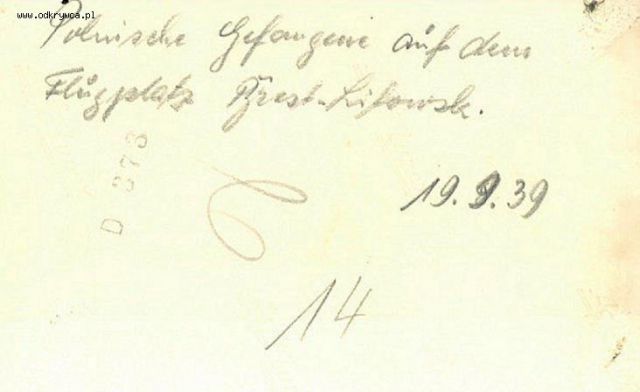 www.odkrywca.pl
Polnische Gefangene auf dem
Flugplatz Brest-Litowsk.
D 373
19.9.39
14